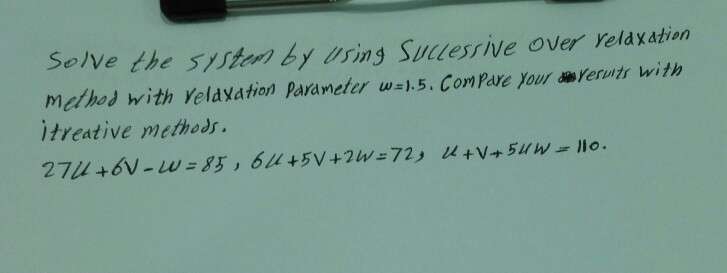 Solve the system by using Successive over relaxation
method with relaxation Parameter w=1.5. Compare your results with
itreative methods.
27u+6v-w=85, 6u+5v+2w=72, u+v+54w=110.